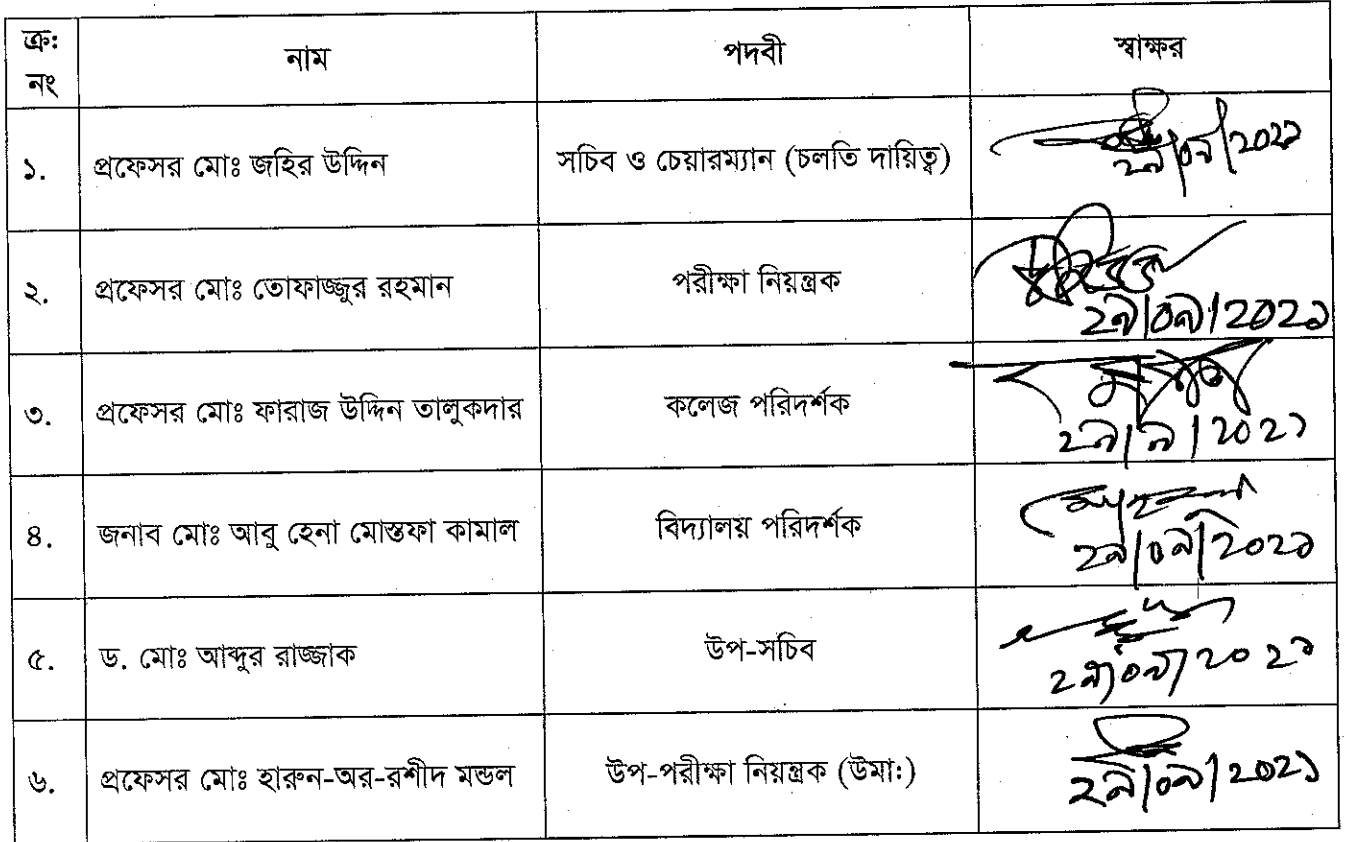 ক্র: নাম পদবী স্বাক্ষর
নং
১. প্রফেসর মোঃ জহির উদ্দিন সচিব ও চেয়ারম্যান (চলতি দায়িত্ব) ২৯/০৯/২০২১
২. প্রফেসর মোঃ তোফাজ্জুর রহমান পরীক্ষা নিয়ন্ত্রক ২৯/০৯/২০২১
৩. প্রফেসর মোঃ ফারাজ উদ্দিন তালুকদার কলেজ পরিদর্শক ২৯/৯/২০২১
৪. জনাব মোঃ আবু হেনা মোস্তফা কামাল বিদ্যালয় পরিদর্শক ২৯/০৯/২০২১
৫. ড. মোঃ আব্দুর রাজ্জাক উপ-সচিব ২৯/০৯/২০২১
৬. প্রফেসর মোঃ হারুন-অর-রশীদ মন্ডল উপ-পরীক্ষা নিয়ন্ত্রক (উমা:) ২৯/০৯/২০২১